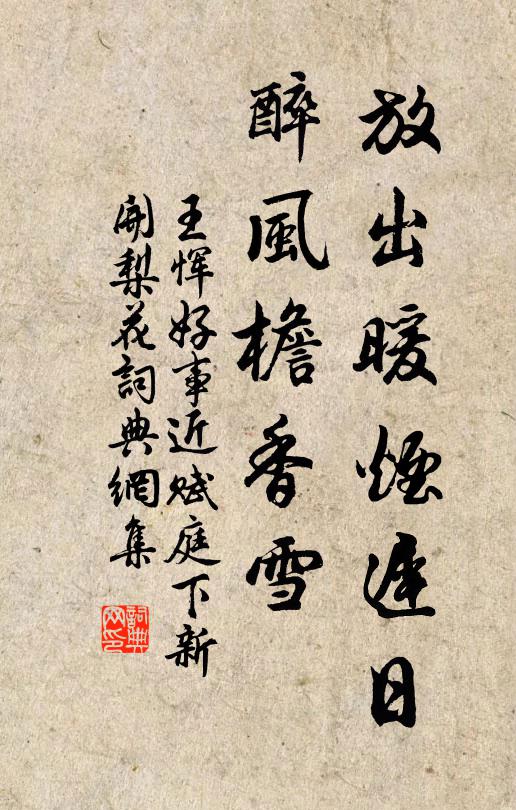 放出暖煙遲日
醉風檐香雪
王惲好事近賦庭下新
開梨花詞典網集
詞典網印